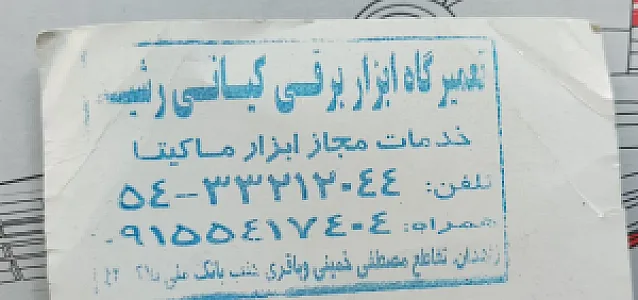 تعمیرگاه ابزار برقی کیانی
خدمات مجاز ابزار ماکیتا
تلفن: ۳۳۲۱۲۰۴۴--۰۵۴
همراه: ۰۹۱۵۵۴۱۷۴۰۴
زاهدان، تقاطع مصطفی خمینی و باقری جنب بانک ملی